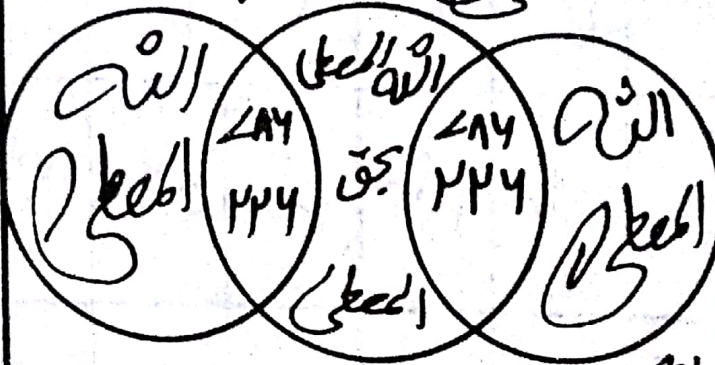 الله
المعطی
۷۸۶
۲۲۶
الله المعطی
بحق
المعطی
۷۸۶
۲۲۶
الله
المعطی